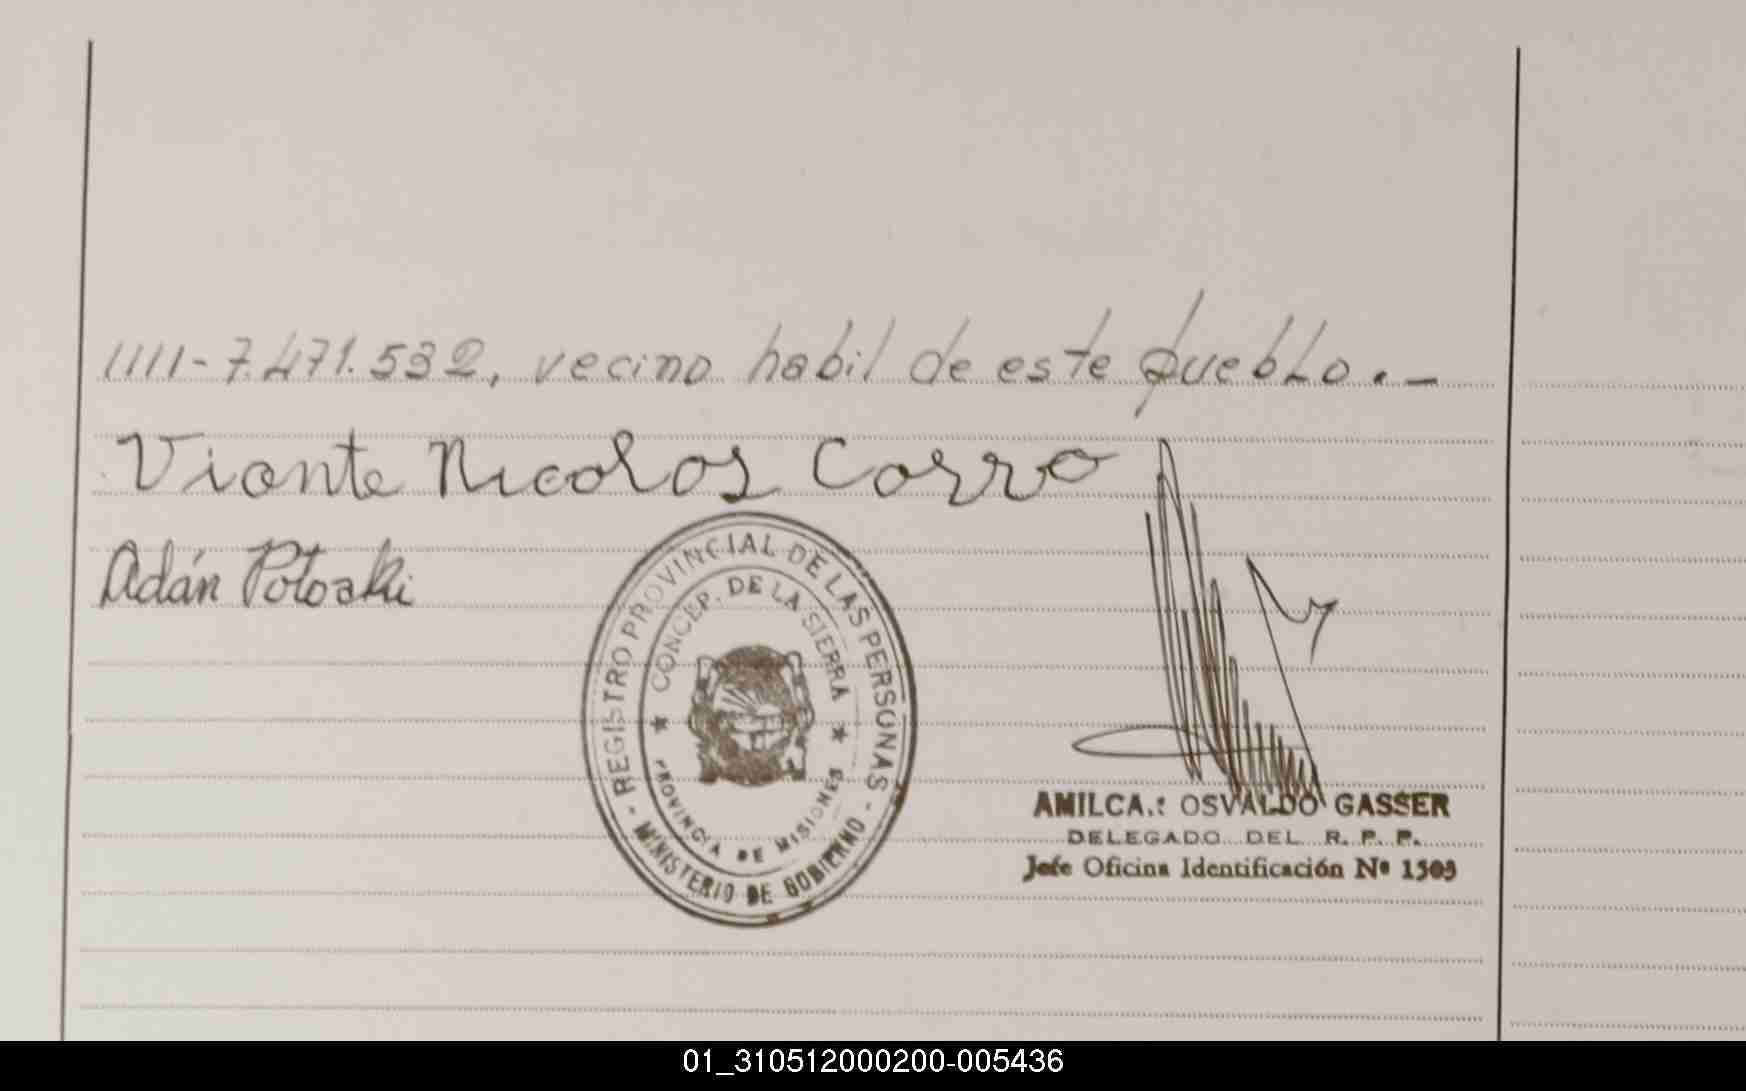 1111-7.471.532, vecino habil de este pueblo.-
Viante Nicolos Corro
Adán Potoski
- REGISTRO PROVINCIAL DE LAS PERSONAS -
MINISTERIO DE GOBIERNO
★ CONCEP. DE LA SIERRA ★
PROVINCIA DE MISIONES
AMILCA.: OSVALDO GASSER
DELEGADO DEL R. P. P.
Jefe Oficina Identificación Nº 1503
01_310512000200-005436